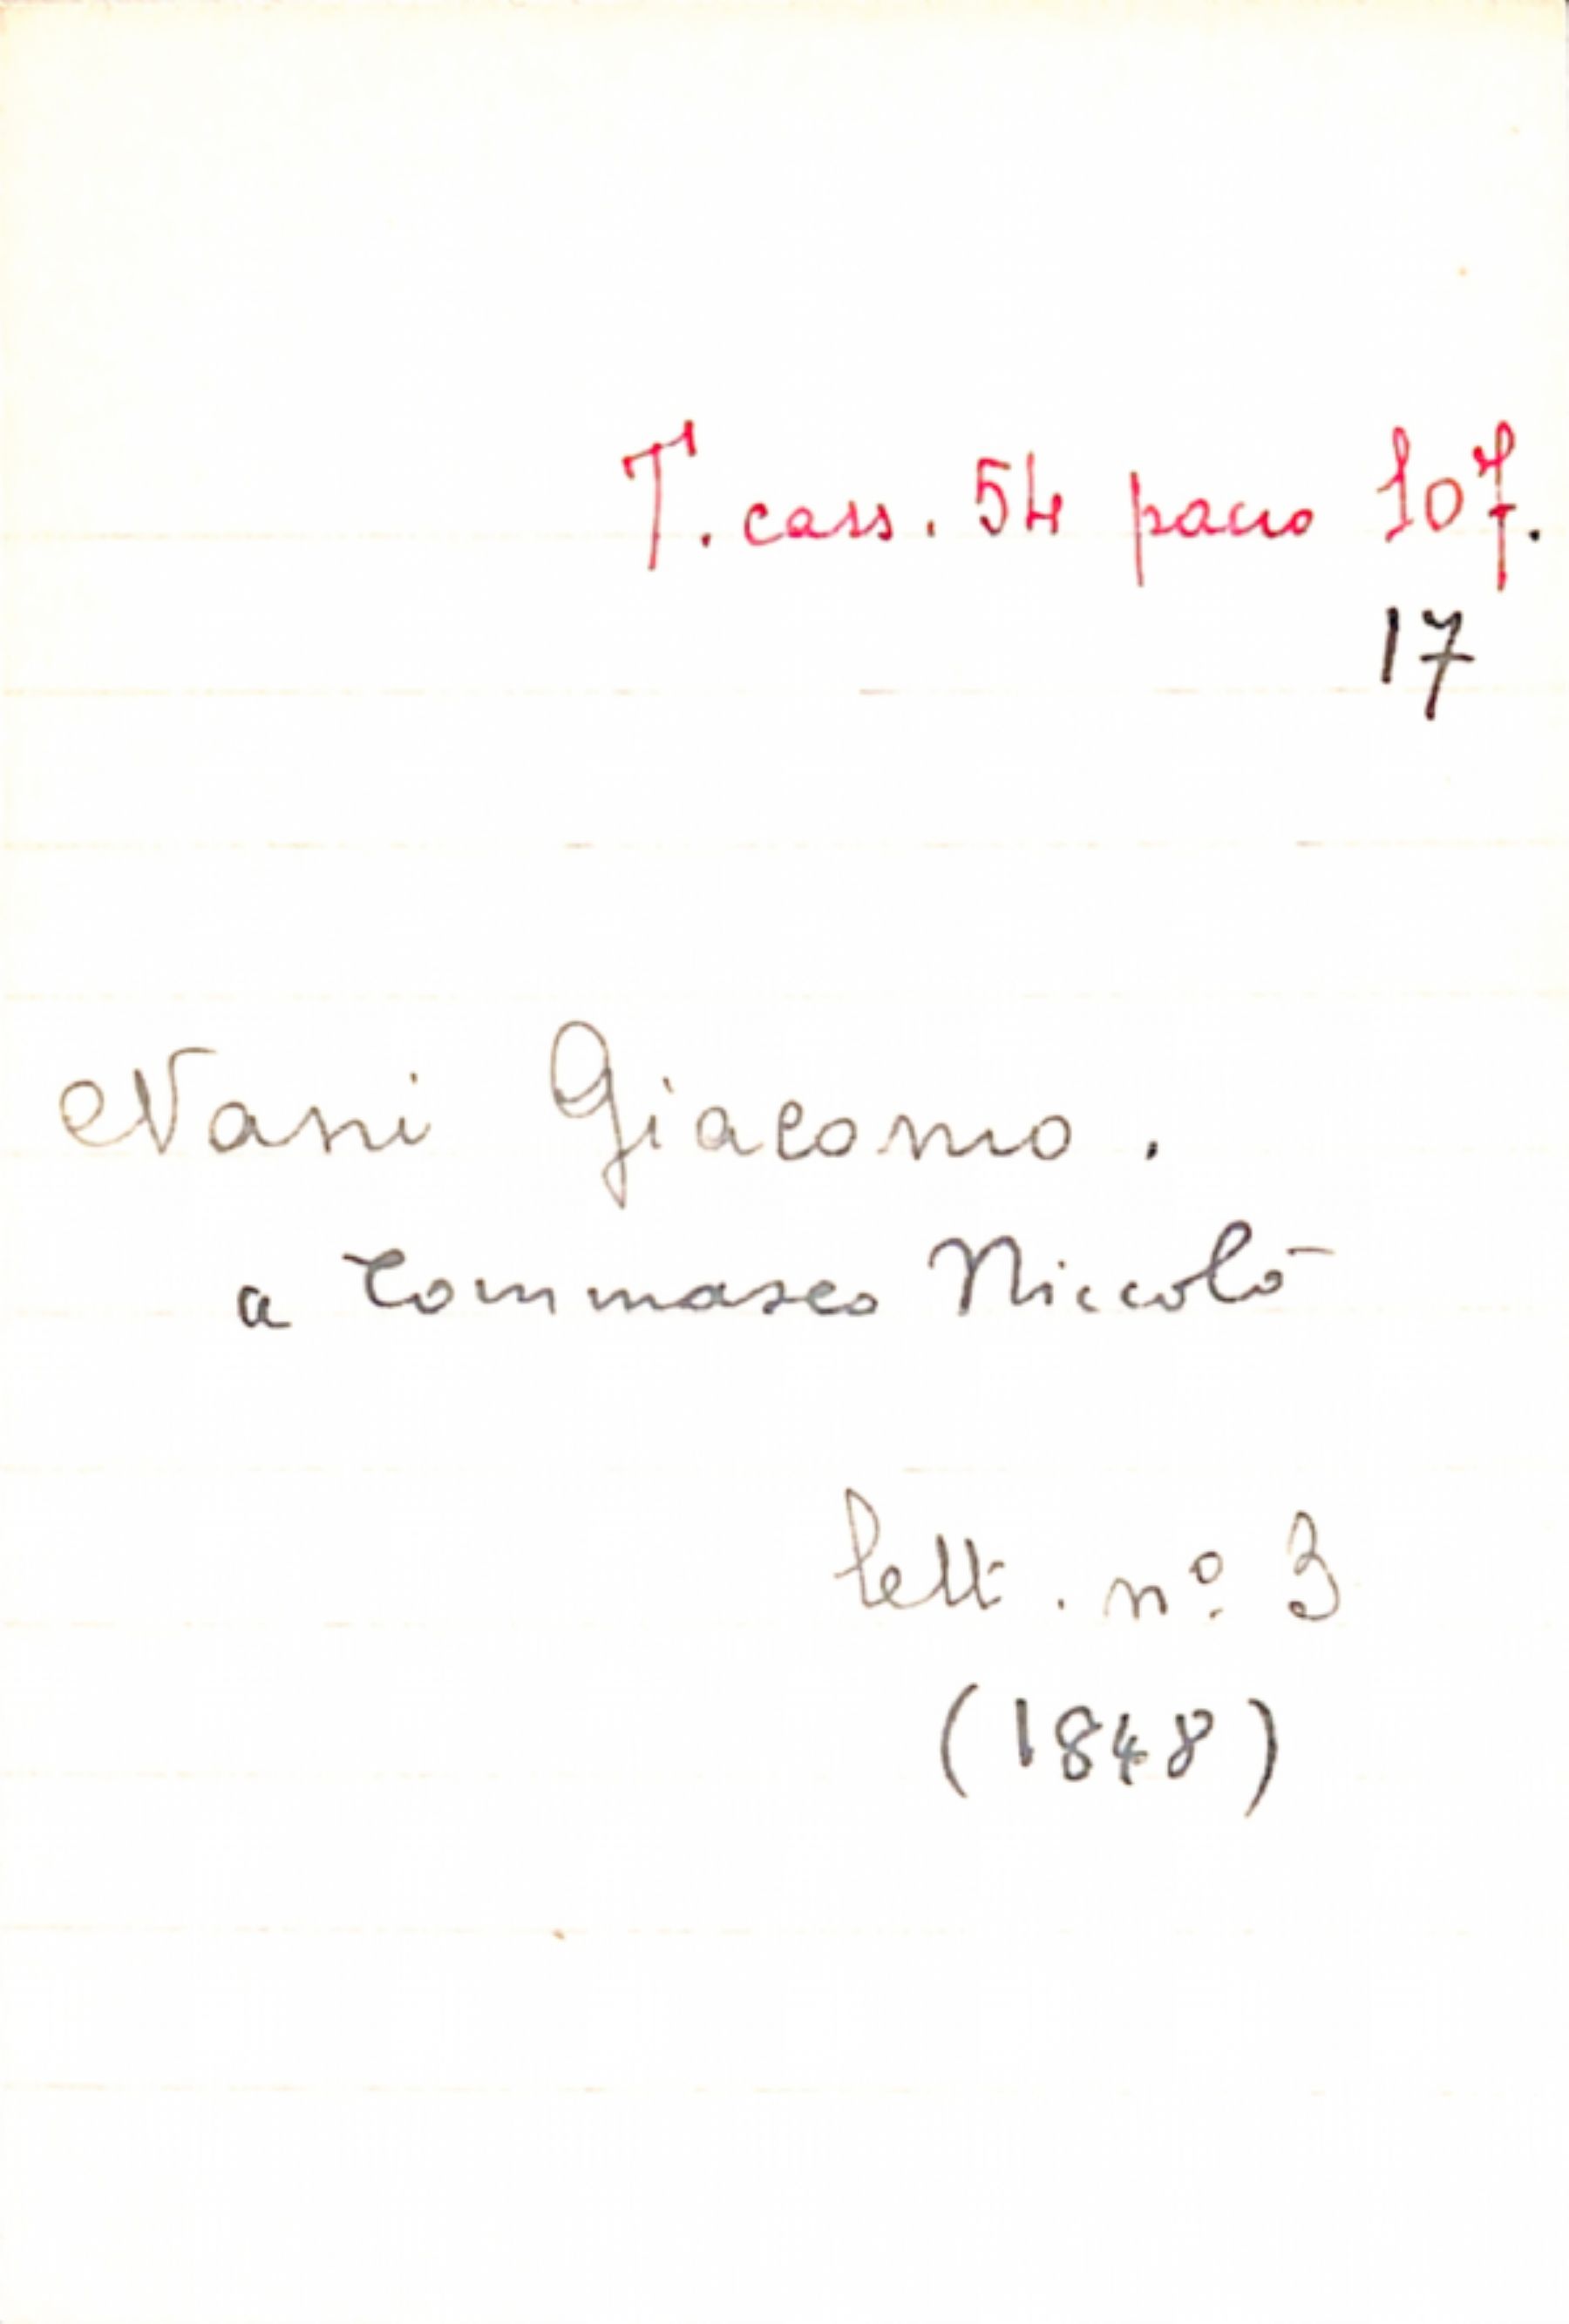 T. cass. 54 pacco 107.
17
Nani Giacomo.
a Tommaseo Niccolò
lett. nº 3
(1848)